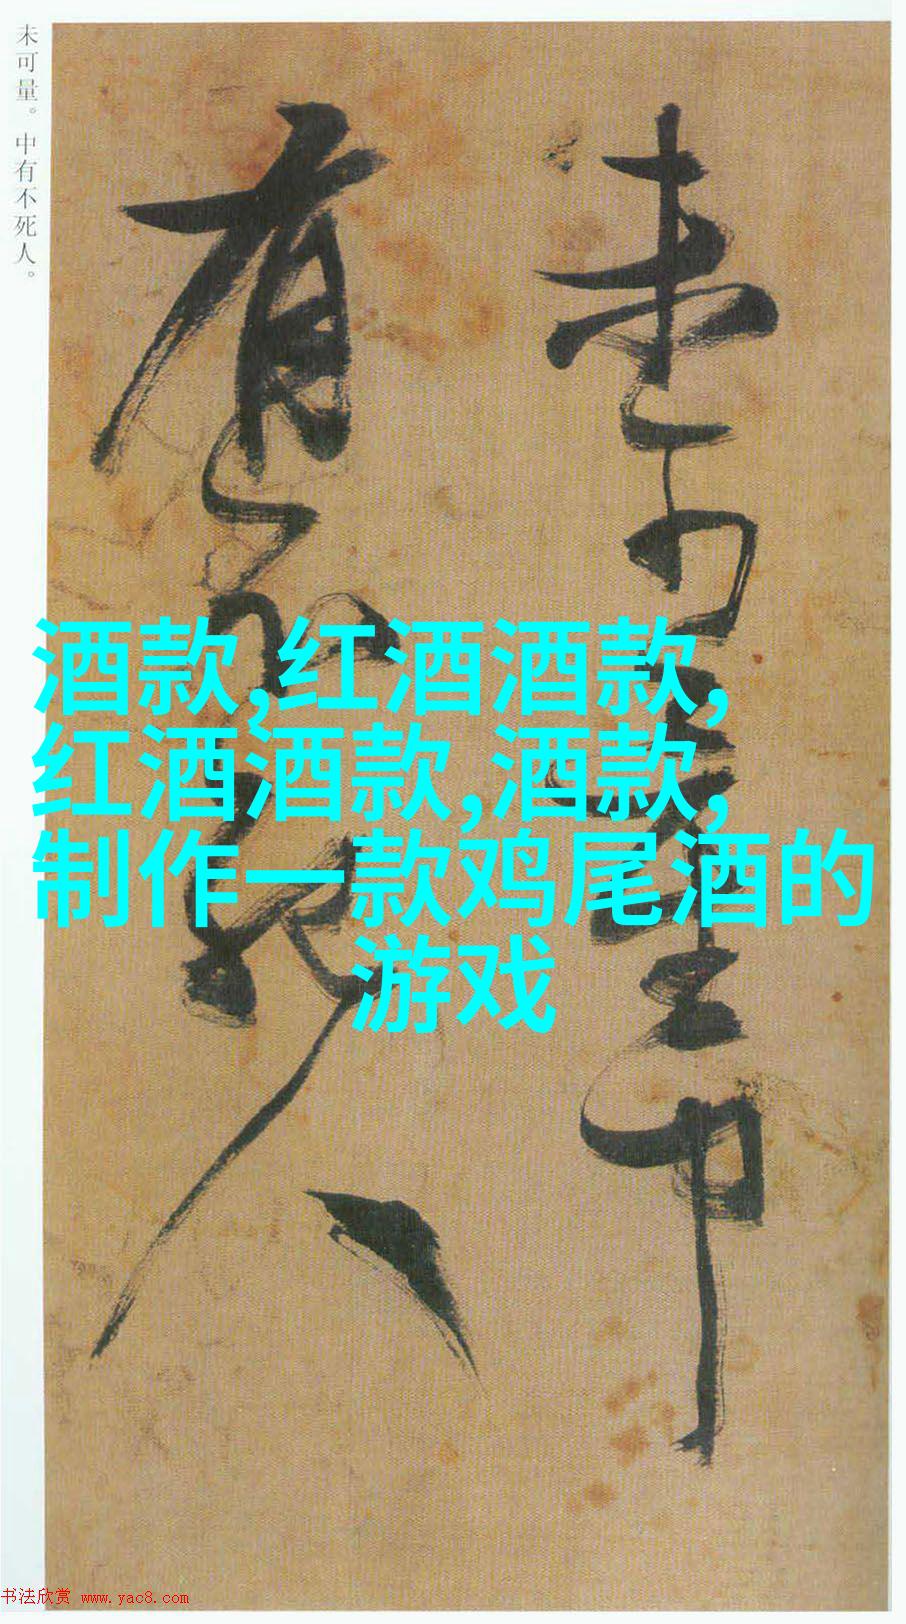 未可量。中有不死人。
未可量中
有不死人
酒款,红酒酒款,
红酒酒款,酒款,
制作一款鸡尾酒的
游戏
书法欣赏 www.yac8.com